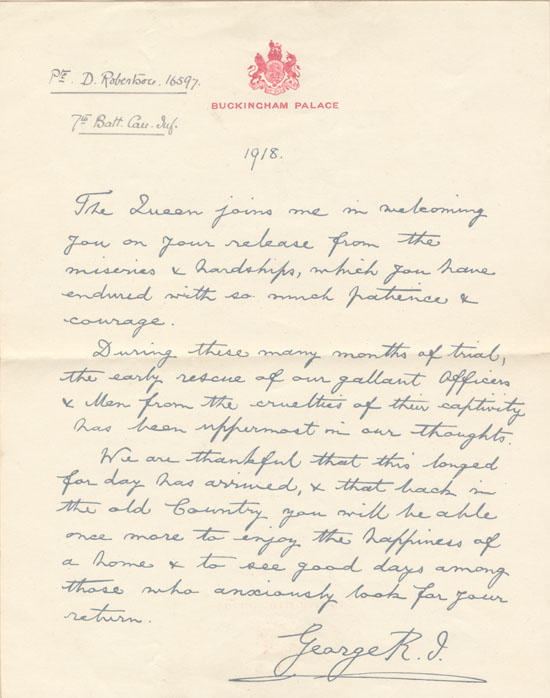 Pte. D. Robertson, 16597.
7th Batt. Can. Inf.
BUCKINGHAM PALACE
1918.
The Queen joins me in welcoming
you on your release from the
miseries & hardships, which you have
endured with so much patience &
courage.
During these many months of trial,
the early rescue of our gallant Officers
& Men from the cruelties of their captivity
has been uppermost in our thoughts.
We are thankful that this longed
for day has arrived, & that back in
the old Country you will be able
once more to enjoy the happiness of
a home & to see good days among
those who anxiously look for your
return.
George R.I.